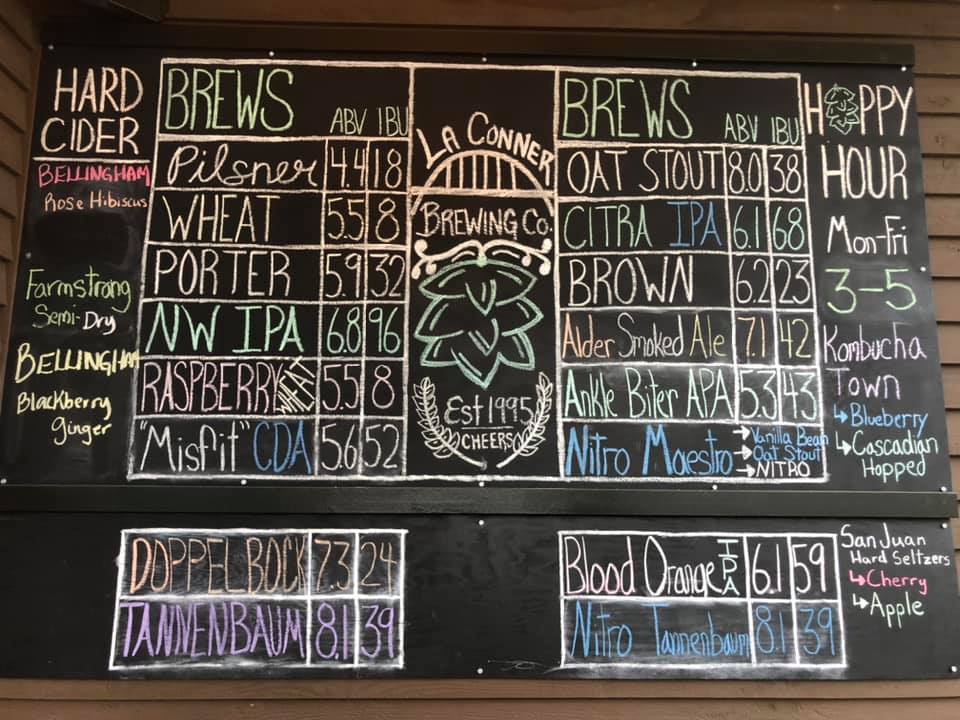 HARD
CIDER
BELLINGHAM
Rose Hibiscus
Farmstrong
Semi-Dry
BELLINGHAM
Blackberry
Ginger
BREWS ABV IBU
Pilsner 4.4 18
WHEAT 5.5 8
PORTER 5.9 32
NW IPA 6.8 96
RASPBERRY WHEAT 5.5 8
"Misfit" CDA 5.6 52
LA CONNER
BREWING CO.
Est 1995
CHEERS
BREWS ABV IBU
OAT STOUT 8.0 38
CITRA IPA 6.1 68
BROWN 6.2 23
Alder Smoked Ale 7.1 42
Ankle Biter APA 5.3 43
Nitro Maestro → Vanilla Bean
→ Oat Stout
→ NITRO
HOPPY
HOUR
Mon-Fri
3-5
Kombucha
Town
↳ Blueberry
↳ Cascadian
Hopped
DOPPELBOCK 7.3 24
TANNENBAUM 8.1 39
Blood Orange IPA 6.1 59
Nitro Tannenbaum 8.1 39
San Juan
Hard Seltzers
↳ Cherry
↳ Apple